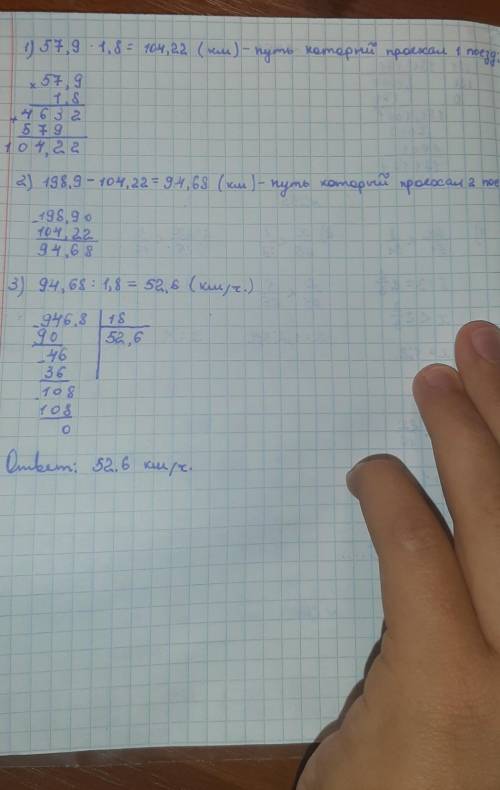 1) 57,9 · 1,8 = 104,22 (км) - путь который проехал 1 поезд.
× 57,9
1,8
+ 4632
579
104,22
2) 198,9 - 104,22 = 94,68 (км) - путь который проехал 2 пое
- 198,90
104,22
94,68
3) 94,68 : 1,8 = 52,6 (км/ч.)
- 946,8 | 18
90 | 52,6
- 46
36
- 108
108
0
Ответ: 52,6 км/ч.